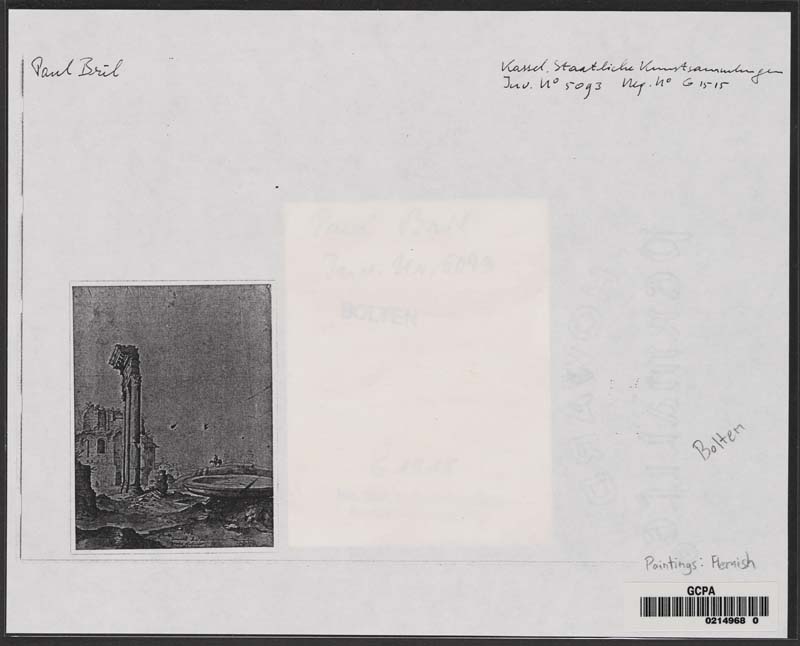 Paul Bril
Kassel, Staatliche Kunstsammlungen
Inv. No 5093 Neg. No G 1515
Paul Bril
Inv. Nr. 5093
BOLTEN
G 1515
Bolten
Paintings: Flemish
GCPA
0214968 0